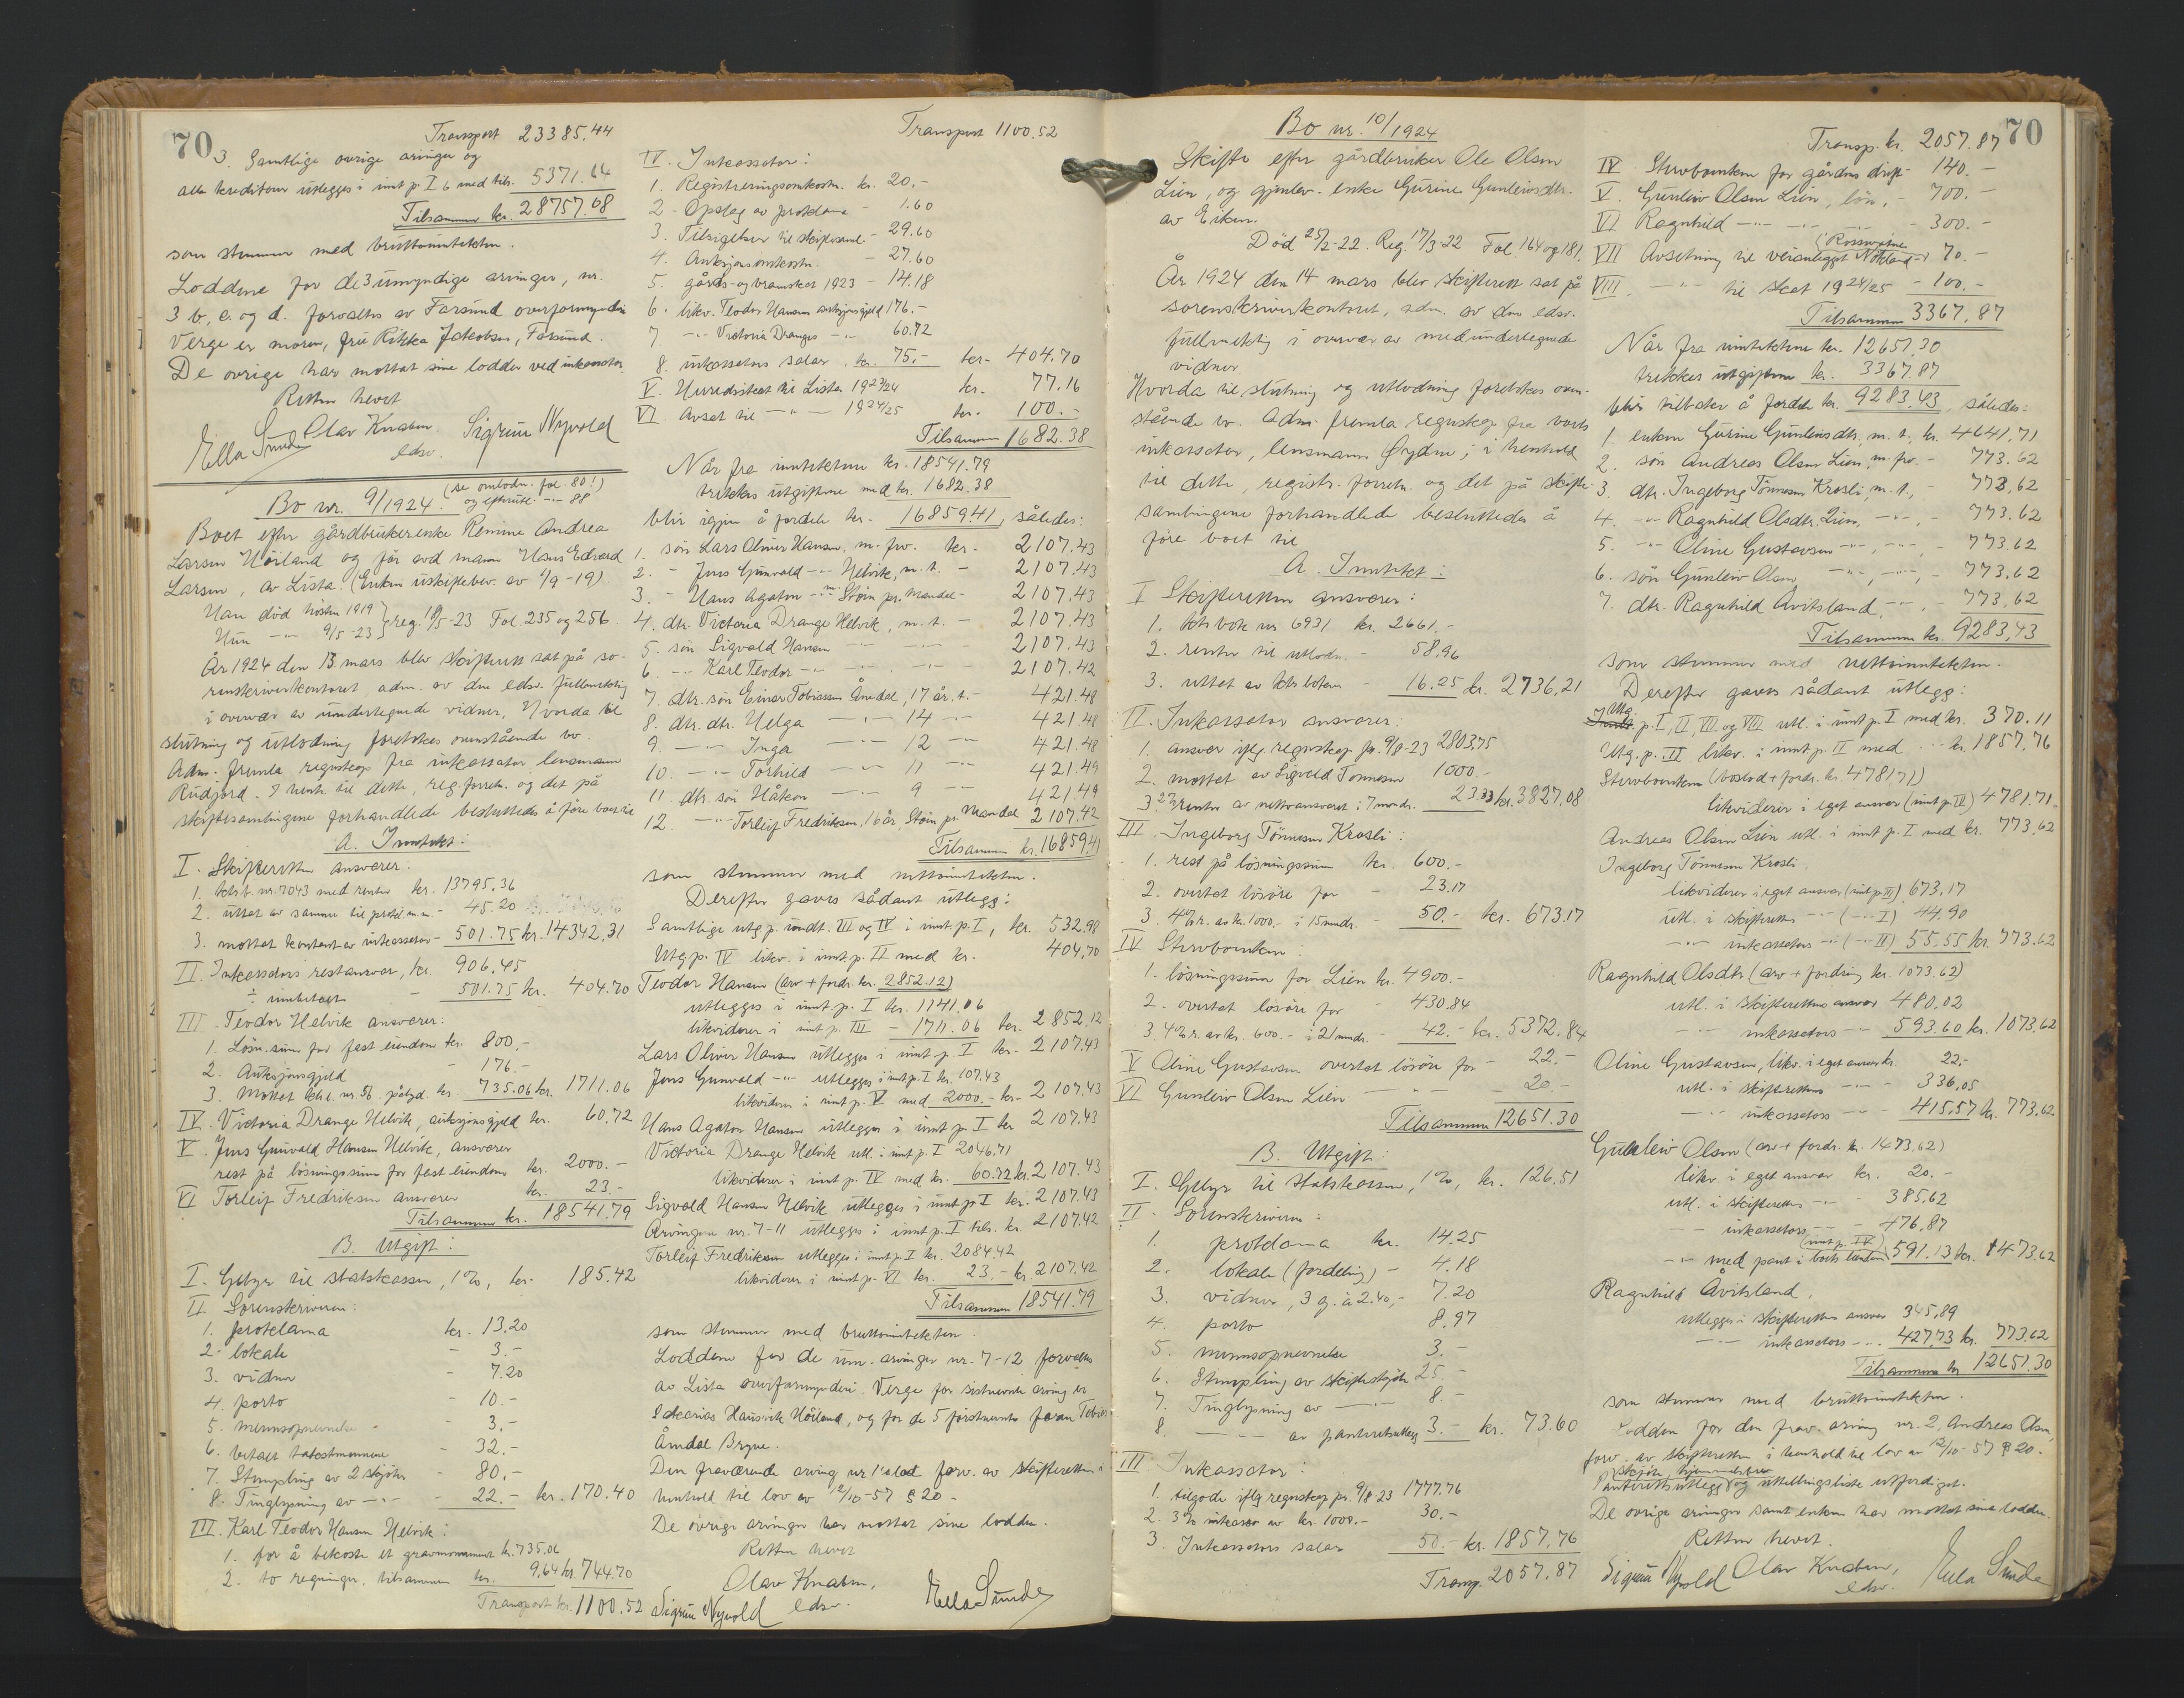 70
Transport 23385.44
3. Samtlige øvrige arvinger og
alle kreditorer utlegges i innt. p. I 6 med tils. 5371.64
Tilsammen kr. 28757.08
som stemmer med bruttoinntekten.
Loddene for de 3 umyndige arvinger, nr.
3 b, c. og d. forvaltes av Farsund overformynderi
Verge er moren, fru Rikka Jakobsen, Farsund.
De øvrige har mottat sine lodder ved inkassator.
Retten hevet
Olav Knaben
edsv.
Ella Sunde
Sigrun Nyvold
Bo nr. 9/1924. (se omlodn. fol. 80!)
og efterutl. -"- 88
Boet efter gårdbrukerenke Remine Andrea
Larsen Höiland og för avd. mann Hans Edvard
Larsen, av Lista. (Enken uskiftebev. av 1/9-19)
Han död hösten 1919
Hun -"- 9/5-23 } reg. 18/5-23 Fol. 235 og 256.
År 1924 den 13. mars blev skifterett sat på so-
renskriverkontoret, adm. av den edsv. fullmektig
i overvær av undertegnede vidner. Hvorda til
slutning og utlodning foretokes ovenstående bo.
Adm. fremla regnskap fra inkassator lensmann
Rudjord. I henh. til dette, reg. forretn. og det på
skiftesamlingene forhandlede besluttedes å före boet til
A. Inntekt:
I. Skifteretten ansvarer:
1. bkb. nr. 7043 med renter kr. 13795.36
2. uttat av samme til prokl. m.m. - 45.20
3. mottat kontant av inkassator - 501.75 kr. 14342.31
II. Inkassators restansvar, kr. 906.45
÷ innbetalt - 501.75 kr. 404.70
III. Teodor Helvik ansvarer:
1. Lösn. sum for fast eiendom kr. 800,-
2. Auksjonsgjeld - 176.-
3. Mottat bkb. nr. 56. pålyd. kr. 735.06 kr. 1711.06
IV. Victoria Drange Helvik, auksjonsgjeld kr. 60.72
V. Jens Gunvald Hansen Helvik, ansvarer
rest på lösningssum for fast eiendom kr. 2000.-
VI Torleif Fredriksen ansvarer kr. 23.-
Tilsammen kr. 18541.79
B. Utgift:
I. Gebyr til statskassen, 1%, kr. 185.42
II Sorenskriveren:
1. proklama kr. 13.20
2. lokale - 3.-
3. vidner - 7.20
4. porto - 10.-
5. mennsopnevnelse - 3.-
6. betalt takstmennene - 32.-
7. Stempling av 2 skjöter - 80.-
8. Tinglysning av -"- - 22.- kr. 170.40
III. Karl Teodor Hansen Helvik:
1. for å bekoste et gravmonument kr. 735.06
2. to regninger, tilsammen kr. 9,64 kr. 744.70
Transport kr. 1100.52
Transport 1100.52
IV. Inkassator:
1. Registreringsomkostn. kr. 20,-
2. Opslag av proklama - 1.60
3. Tilsigelser til skiftesaml. - 29.60
4. Auksjonsomkostn. - 27.60
5. gårds- og brannskat 1923 - 14.18
6. likv. Teodor Hansens auksjonsgjeld 176.-
7. -"- Victoria Dranges -"- 60.72
8. inkassators salær, kr. 75,- kr. 404.70
V. Herredsskat til Lista 1923/24 kr. 77.16
VI. Avsat til -"- 1924/25 kr. 100.-
Tilsammen 1682.38
Når fra inntektene kr. 18541.79
trekkes utgiftene med kr. 1682.38
blir igjen å fordele kr. 16859.41, således:
1. sön Lars Oliver Hansen, m. frv. kr. 2107.43
2. - Jens Gunvald -"- Helvik, m. t. - 2107.43
3. - Hans Agaton -"- Stöin pr. Mandal - 2107.43
4. dtr. Victoria Drange Helvik, m. t. - 2107.43
5. sön Sigvald Hansen -"- 2107.43
6. -"- Karl Teodor -"- 2107.42
7. dtr. sön Einar Tobiassen Åmdal, 17 år, t. - 421.48
8. dtr. dtr. Helga -"- 14 -"- 421.48
9. -"- Inga -"- 12 -"- 421.48
10. -"- Torhild -"- 11 -"- 421.49
11. dtr. sön Håkon -"- 9 -"- 421.49
12. -"- Torleif Fredriksen, 16 år, Stöin pr. Mandal 2107.42
Tilsammen kr. 16859.41
som stemmer med nettoinntekten.
Derefter gaves sådant utlegg:
Samtlige utg. p. undt. III og IV i innt. p. I, kr. 532.98
Utg. p. IV likv. i innt. p. II med kr. 404.70
Teodor Hansen (arv + fordr. kr. 2852.12)
utlegges i innt. p. I kr. 1141.06
likviderer i innt. p. III - 1711.06 kr. 2852.12
Lars Oliver Hansen utlegges i innt. p. I kr. 2107.43
Jens Gunvald -"- utlegges i innt. p. I kr. 107.43
likviderer i innt. p. V med 2000.- kr. 2107.43
Hans Agaton Hansen utlegges i innt. p. I kr. 2107.43
Victoria Drange Helvik utl. i innt. p. I 2046.71
likviderer i innt. p. IV med kr. 60.72 kr. 2107.43
Sigvald Hansen Helvik utlegges i innt. p. I kr. 2107.43
Arvingene nr. 7-11 utlegges i innt. p. I tils. kr. 2107.42
Torleif Fredriksen utlegges i innt. p. I kr. 2084.42
likviderer i innt. p. VI kr. 23.- kr. 2107.42
Tilsammen 18541.79
som stemmer med bruttoinntekten.
Loddene for de um. arvinger nr. 7-12 forvaltes
av Lista overformynderi. Verge for sistnevnte arving er
Sakarias Hansvik Höiland, og for de 5 förstnevnte faren Tobias
Åmdal Bryne.
Den fraværende arving nr. 1's lod forv. av skifteretten i
henhold til lov av 12/10-57 § 20.
De övrige arvinger har mottat sine lodder.
Retten hevet
Olav Knaben,
edsv.
Sigrun Nyvold
Ella Sunde
Bo nr. 10/1924
Skifte efter gårdbruker Ole Olsen
Lien, og gjenlev. enke Gurine Gunleivsdtr.
av Eiken.
Död 25/2-22. Reg. 17/3-22 Fol. 164 og 181.
År 1924 den 14 mars blev skifterett sat på
sorenskriverkontoret, adm. av den edsv.
fullmektig i overvær av medundertegnede
vidner
Hvorda til slutning og utlodning foretokes oven-
stående bo. Adm. fremla regnskap fra boets
inkassator, lensmann Frydne; i henhold
til dette, registr. forretn. og det på skifte-
samlingene forhandlede besluttedes å
före boet til
A. Inntekt:
I Skifteretten ansvarer:
1. bkb. bok nr. 6931 kr. 2661.-
2. renter til utlodn. - 58.96
3. uttat av bkb. boken - 16.25 kr. 2736.21
II. Inkassator ansvarer:
1. ansvar iflg. regnskap pr. 9/8-23 2803.75
2. mottat av Sigvald Tönnesen 1000.-
3. 2% renter av nettoansvaret i 7 mndr. 23.33 kr. 3827.08
III. Ingeborg Tönnesen Krosli:
1. rest på lösningssum kr. 600.-
2. overtat lösöre for - 23.17
3. 4% r. av kr. 1000.- i 15 mndr. - 50.- kr. 673.17
IV Stervboenken:
1. lösningssum for Lien kr. 4900.-
2. overtat lösöre for - 430.84
3. 4% r. av kr. 600.- i 21 mndr. - 42.- kr. 5372.84
V Oline Gustavsen overtat lösöre for - 22.-
VI Gunleiv Olsen Lien -"- 20.-
Tilsammen 12651.30
B. Utgift:
I. Gebyr til statskassen, 1%, kr. 126.51
II. Sorenskriveren:
1. proklama kr. 14.25
2. lokale (fordeling) - 4.18
3. vidner, 3 g. à 2.40,- 7.20
4. porto 8.97
5. mennsopnevnelse 3.-
6. Stempling av skifteskjöte 25.-
7. Tinglysning av -"- 8.-
8. -"- av panteretsutlegg 3.- kr. 73.60
III Inkassator:
1. tilgode iflg regnskap pr. 9/8-23 1777.76
2. 3% inkasso av kr. 1000.- 30.-
3. Inkassators salær 50.- kr. 1857.76
Transp. 2057.87
70
Transp. kr. 2057.87
IV Stervboenken for gårdens drift - 140.-
V. Gunleiv Olsen Lien, lön, - 700.-
VI Ragnhild -"- - 300.-
VII Avsetning til veianlegget Rossevatne Netland - 70.-
VIII. -"- til skat 1924/25 - 100.-
Tilsammen 3367.87
Når fra inntektene kr. 12651.30
trekkes utgiftene kr. 3367.87
blir tilbake å fordele kr. 9283.43, således:
1. enken Gurine Gunleivsdtr. m. t., kr. 4641.71
2. sön Andreas Olsen Lien, m. frv. - 773.62
3. dtr. Ingeborg Tönnesen Krosli, m. t., - 773.62
4. -"- Ragnhild Olsdtr. Lien, -"- - 773.62
5. -"- Oline Gustavsen -"- - 773.62
6. sön Gunleiv Olsen, -"- - 773.62
7. dtr. Ragnhild Åvitsland, -"- - 773.62
Tilsammen kr. 9283.43
som stemmer med nettoinntekten.
Derefter gaves sådant utlegg:
Utg. p. I, II, VII og VIII utl. i innt. p. I med kr. 370.11
Utg. p. III likv. i innt. p. II med -"- kr. 1857.76
Stervboenken (boslod + fordr. kr. 4781.71)
likviderer i eget ansvar (innt. p. IV) 4781.71
Andreas Olsen Lien utl. i innt. p. I med kr. 773.62
Ingeborg Tönnesen Krosli:
likviderer i eget ansvar (innt. p. III) 673.17
utl. i skifterettens -"- (-"- I) 44.90
-"- inkassators -"- (-"- II) 55.55 kr. 773.62
Ragnhild Olsdtr. (arv + fordring kr. 1073.62)
utl. i skifterettens ansvar 480.02
-"- inkassators -"- 593.60 kr. 1073.62
Oline Gustavsen, likv. i eget ansvar kr. 22.-
utl. i skifterettens -"- - 336.05
-"- inkassators -"- 415.57 kr. 773.62
Gunleiv Olsen (arv + fordr. kr. 1473.62)
likv. i eget ansvar kr. 20.-
utl. i skifterettens -"- - 385.62
-"- inkassators -"- - 476.87
-"- med pant i boets eiendom (innt. p. IV) 591.13 kr. 1473.62
Ragnhild Åvitsland,
utlegges i skifterettens ansvar 345.89
-"- inkassators -"- 427.73 kr. 773.62
Tilsammen kr. 12651.30
som stemmer med bruttoinntekten.
Lodden for den frav. arving nr. 2, Andreas Olsen,
forv. av skifteretten i henhold til lov av 12/10-57 § 20.
Skjöte, hjemmelsbrev
Panteretsutlegg og uttellingsliste utferdiget.
De övrige arvinger samt enken har mottat sine lodder.
Retten hevet.
Sigrun Nyvold
Olav Knaben,
edsv.
Ella Sunde